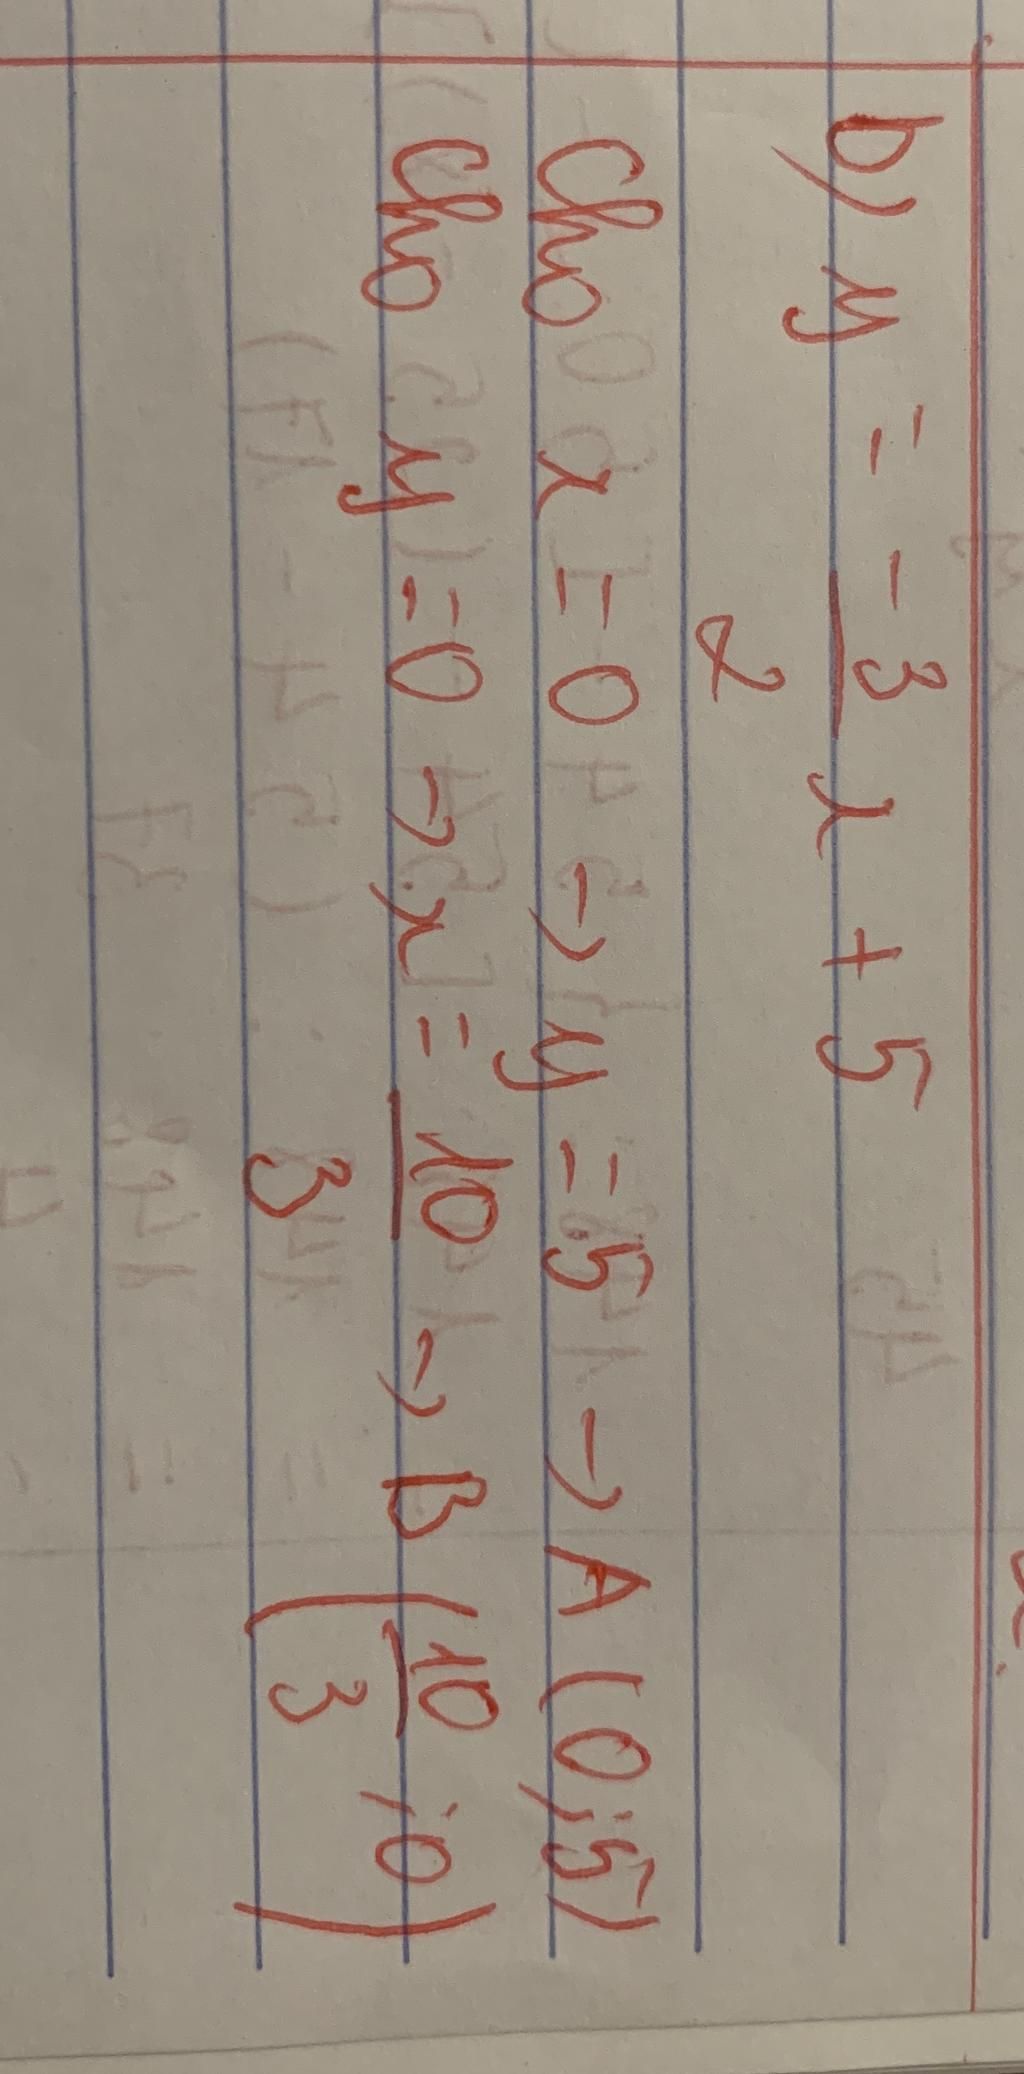 b) y = -3/2 x + 5
Cho x = 0 → y = 5 → A (0;5)
Cho y = 0 → x = 10/3 → B (10/3 ;0)